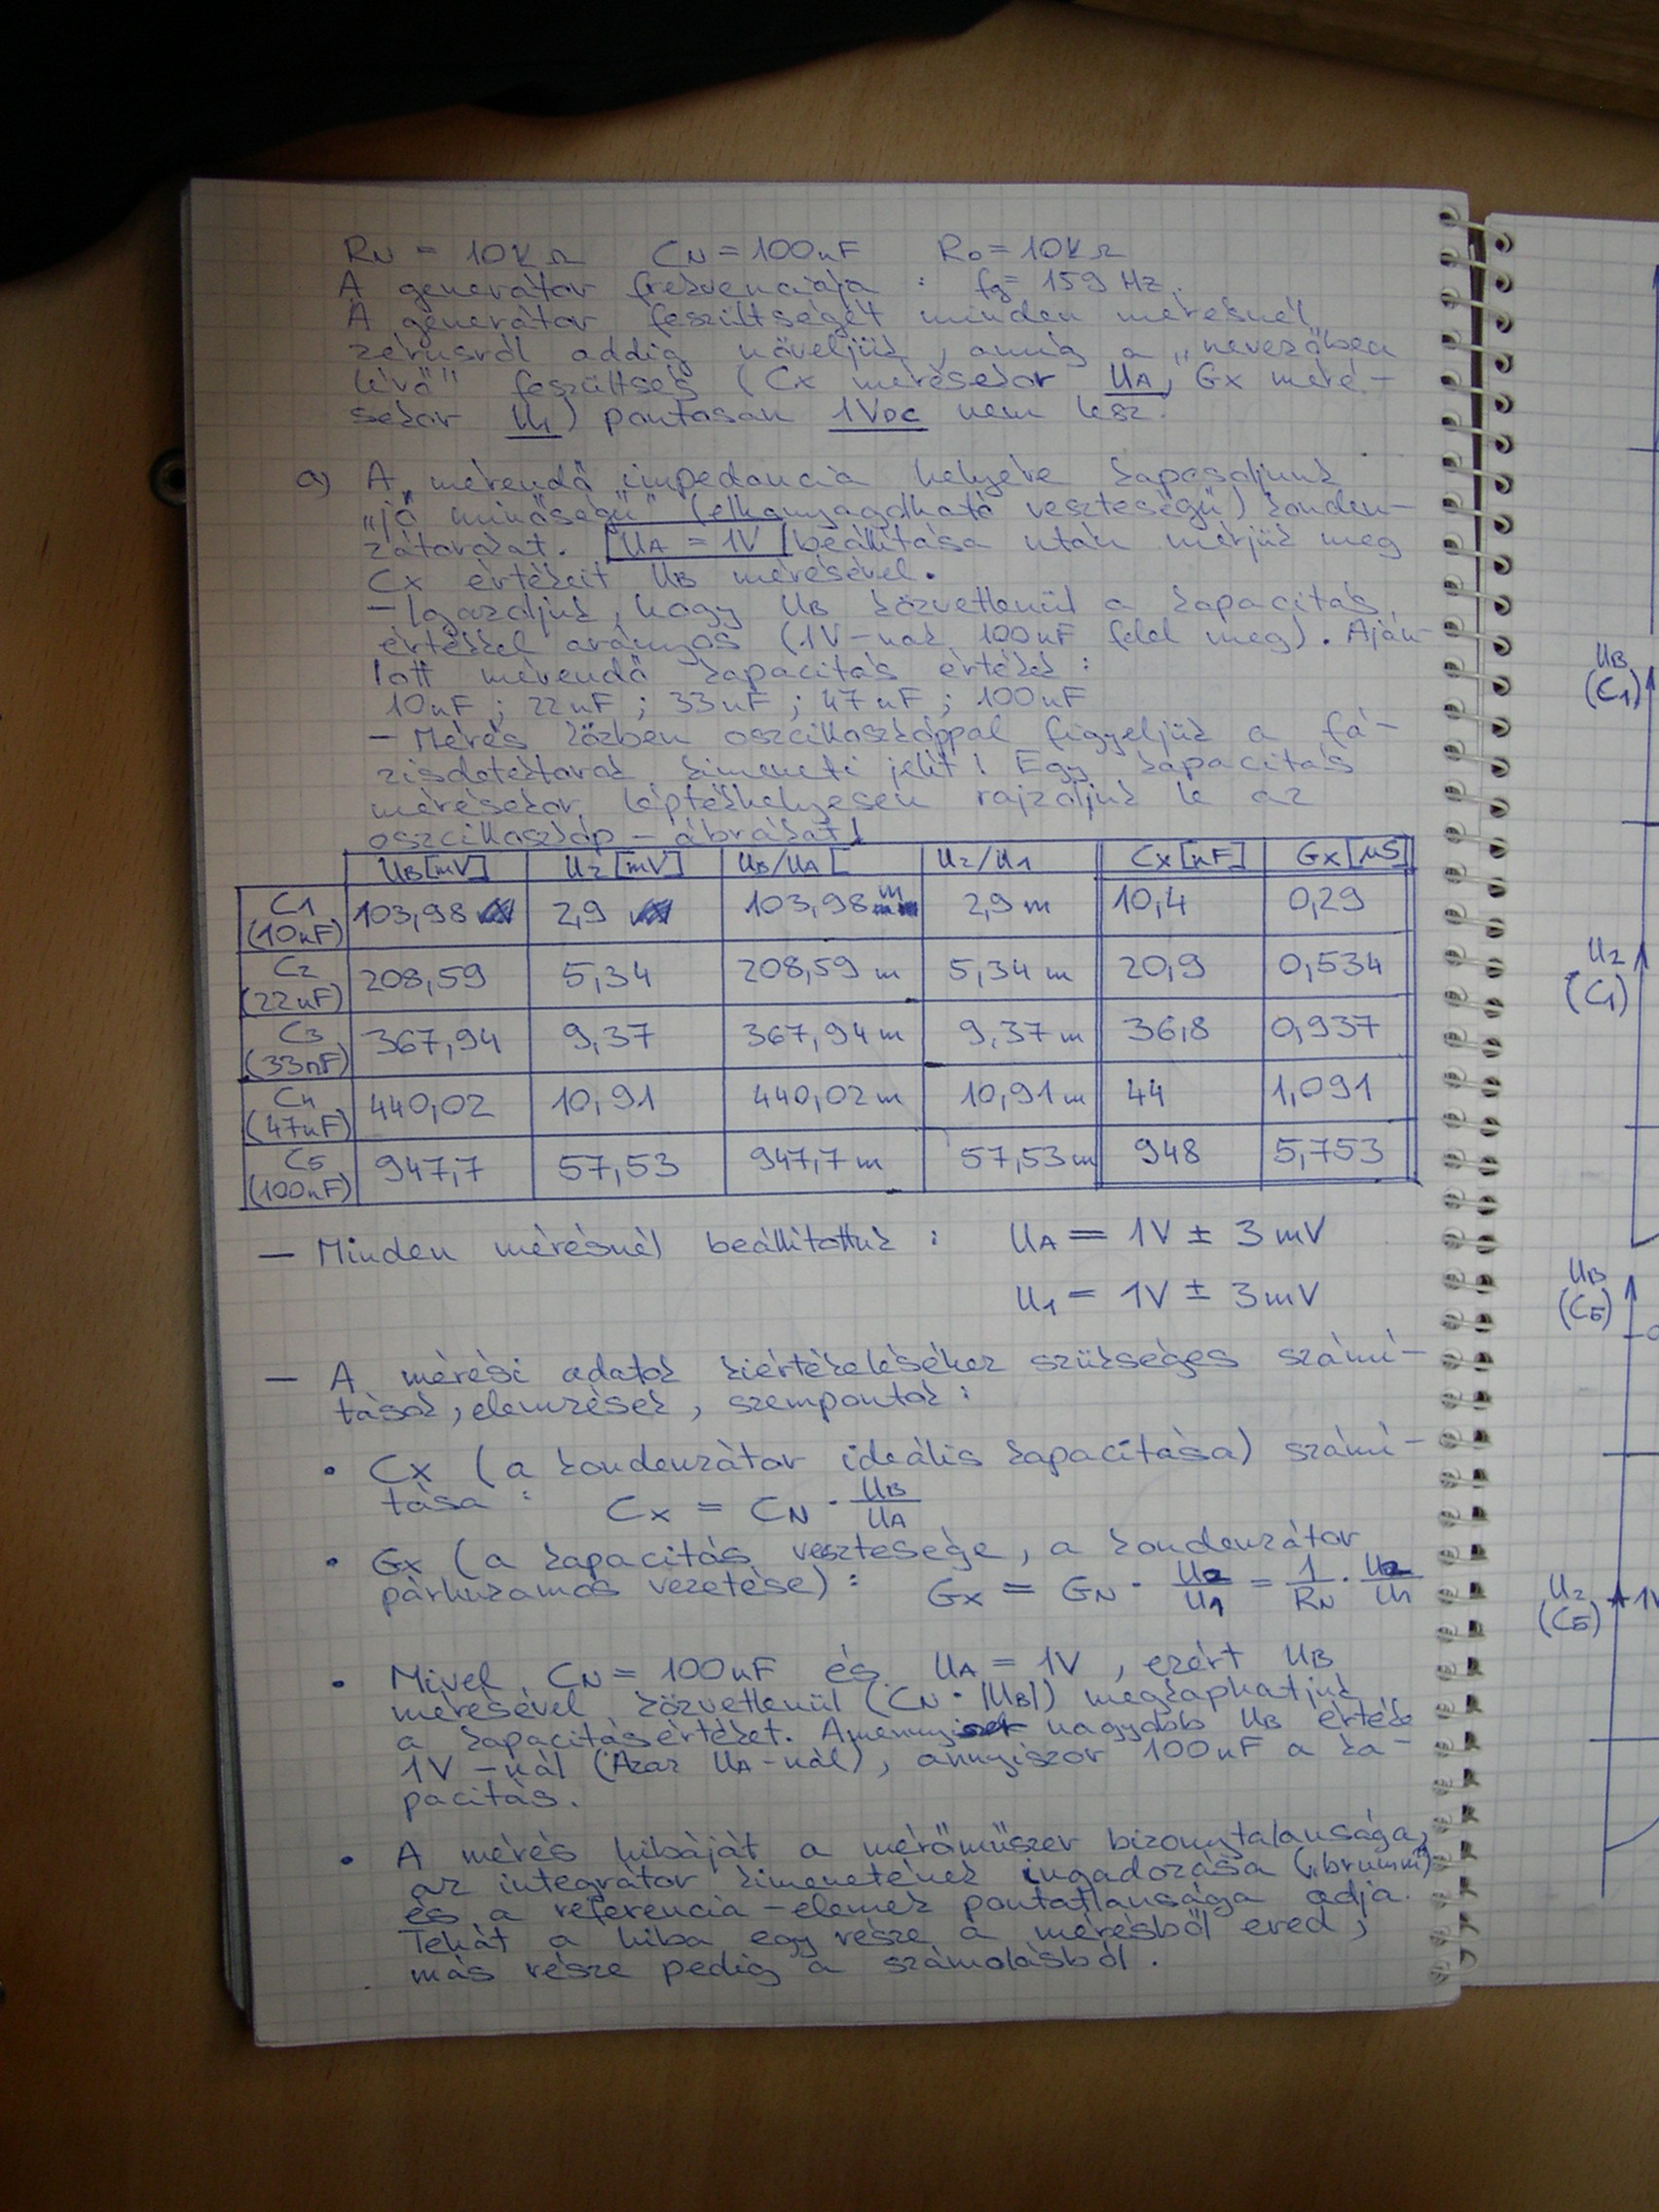 RN = 10KΩ CN = 100nF R0 = 10KΩ
A generátor frekvenciája : fg = 159 Hz.
A generátor feszültségét minden mérésnél
zérusról addig növeljük, amíg a „nevezőben
lévő" feszültség (Cx mérésekor UA, Gx méré-
sekor U1) pontosan 1VDC nem lesz.
a) A mérendő impedancia helyére kapcsoljunk
„jó minőségű" (elhanyagolható veszteségű) konden-
zátorokat. UA = 1V beállítása után mérjük meg
Cx értékeit UB mérésével.
- Igazoljuk, hogy UB közvetlenül a kapacitás
értékkel arányos (1V-nak 100nF felel meg). Aján-
lott mérendő kapacitás értékek :
10nF ; 22nF ; 33nF ; 47nF ; 100nF
- Mérés közben oszcilloszkóppal figyeljük a fá-
zisdetektorok kimeneti jelét! Egy kapacitás
mérésekor léptékhelyesen rajzoljuk le az
oszcilloszkóp - ábrákat!
UB[mV] U2[mV] UB/UA [ U2/U1 Cx[nF] Gx[μS]
C1 (10nF) 103,98 2,9 103,98 m 2,9 m 10,4 0,29
C2 (22nF) 208,59 5,34 208,59 m 5,34 m 20,9 0,534
C3 (33nF) 367,94 9,37 367,94 m 9,37 m 36,8 0,937
C4 (47nF) 440,02 10,91 440,02 m 10,91 m 44 1,091
C5 (100nF) 947,7 57,53 947,7 m 57,53 m 948 5,753
- Minden mérésnél beállítottuk : UA = 1V ± 3mV
U1 = 1V ± 3mV
- A mérési adatok kiértékeléséhez szükséges számí-
tások, elemzések, szempontok :
• Cx (a kondenzátor ideális kapacitása) számí-
tása : Cx = CN · UB/UA
• Gx (a kapacitás vesztesége, a kondenzátor
párhuzamos vezetése) : Gx = GN · U2/U1 = 1/RN · U2/U1
• Mivel CN = 100nF és UA = 1V, ezért UB
mérésével közvetlenül (CN · |UB|) megkaphatjuk
a kapacitásértéket. nagyobb UB értéke
1V-nál (Azaz UA-nál), annyiszor 100nF a ka-
pacitás.
• A mérés hibáját a mérőműszer bizonytalansága,
az integrátor kimenetének ingadozása („brumm")
és a referencia-elemek pontatlansága adja.
Tehát a hiba egy része a mérésből ered,
más része pedig a számolásból.
UB
(C1)
U2
(C1)
UB
(C5)
U2
(C5)
1V